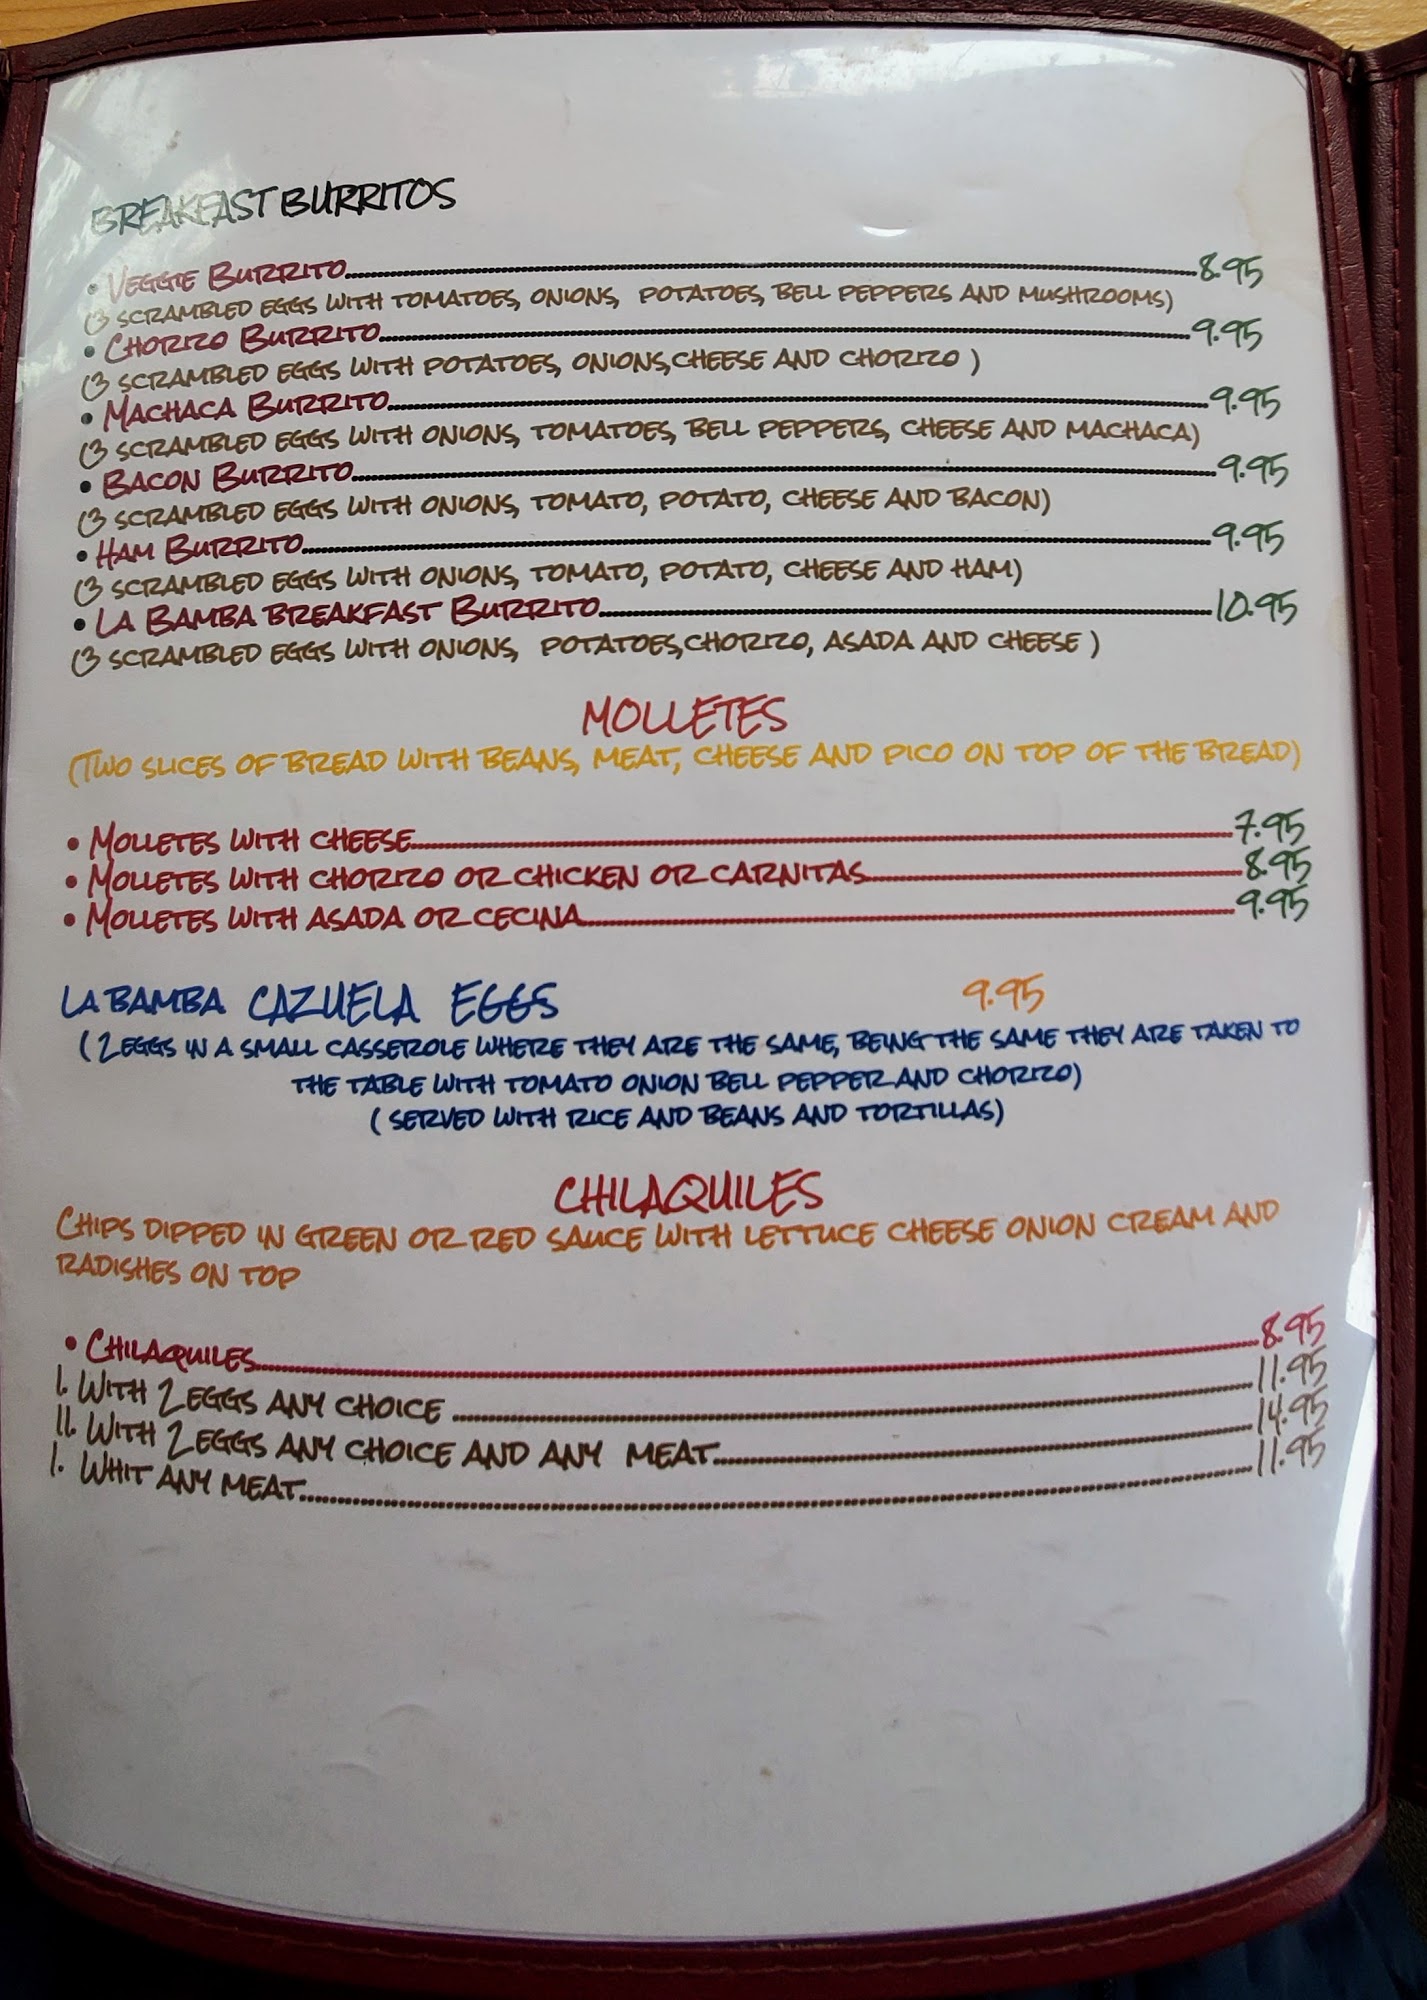 BREAKFAST BURRITOS
• VEGGIE BURRITO 8.95
(3 SCRAMBLED EGGS WITH TOMATOES, ONIONS, POTATOES, BELL PEPPERS AND MUSHROOMS)
• CHORIZO BURRITO 9.95
(3 SCRAMBLED EGGS WITH POTATOES, ONIONS,CHEESE AND CHORIZO )
• MACHACA BURRITO 9.95
(3 SCRAMBLED EGGS WITH ONIONS, TOMATOES, BELL PEPPERS, CHEESE AND MACHACA)
• BACON BURRITO 9.95
(3 SCRAMBLED EGGS WITH ONIONS, TOMATO, POTATO, CHEESE AND BACON)
• HAM BURRITO 9.95
(3 SCRAMBLED EGGS WITH ONIONS, TOMATO, POTATO, CHEESE AND HAM)
• LA BAMBA BREAKFAST BURRITO 10.95
(3 SCRAMBLED EGGS WITH ONIONS, POTATOES,CHORIZO, ASADA AND CHEESE )
MOLLETES
(TWO SLICES OF BREAD WITH BEANS, MEAT, CHEESE AND PICO ON TOP OF THE BREAD)
• MOLLETES WITH CHEESE 7.95
• MOLLETES WITH CHORIZO OR CHICKEN OR CARNITAS 8.95
• MOLLETES WITH ASADA OR CECINA 9.95
LA BAMBA CAZUELA EGGS 9.95
( 2 EGGS IN A SMALL CASSEROLE WHERE THEY ARE THE SAME, BEING THE SAME THEY ARE TAKEN TO
THE TABLE WITH TOMATO ONION BELL PEPPER AND CHORIZO)
( SERVED WITH RICE AND BEANS AND TORTILLAS)
CHILAQUILES
CHIPS DIPPED IN GREEN OR RED SAUCE WITH LETTUCE CHEESE ONION CREAM AND
RADISHES ON TOP
• CHILAQUILES 8.95
I. WITH 2 EGGS ANY CHOICE 11.95
II. WITH 2 EGGS ANY CHOICE AND ANY MEAT 14.95
I. WHIT ANY MEAT 11.95